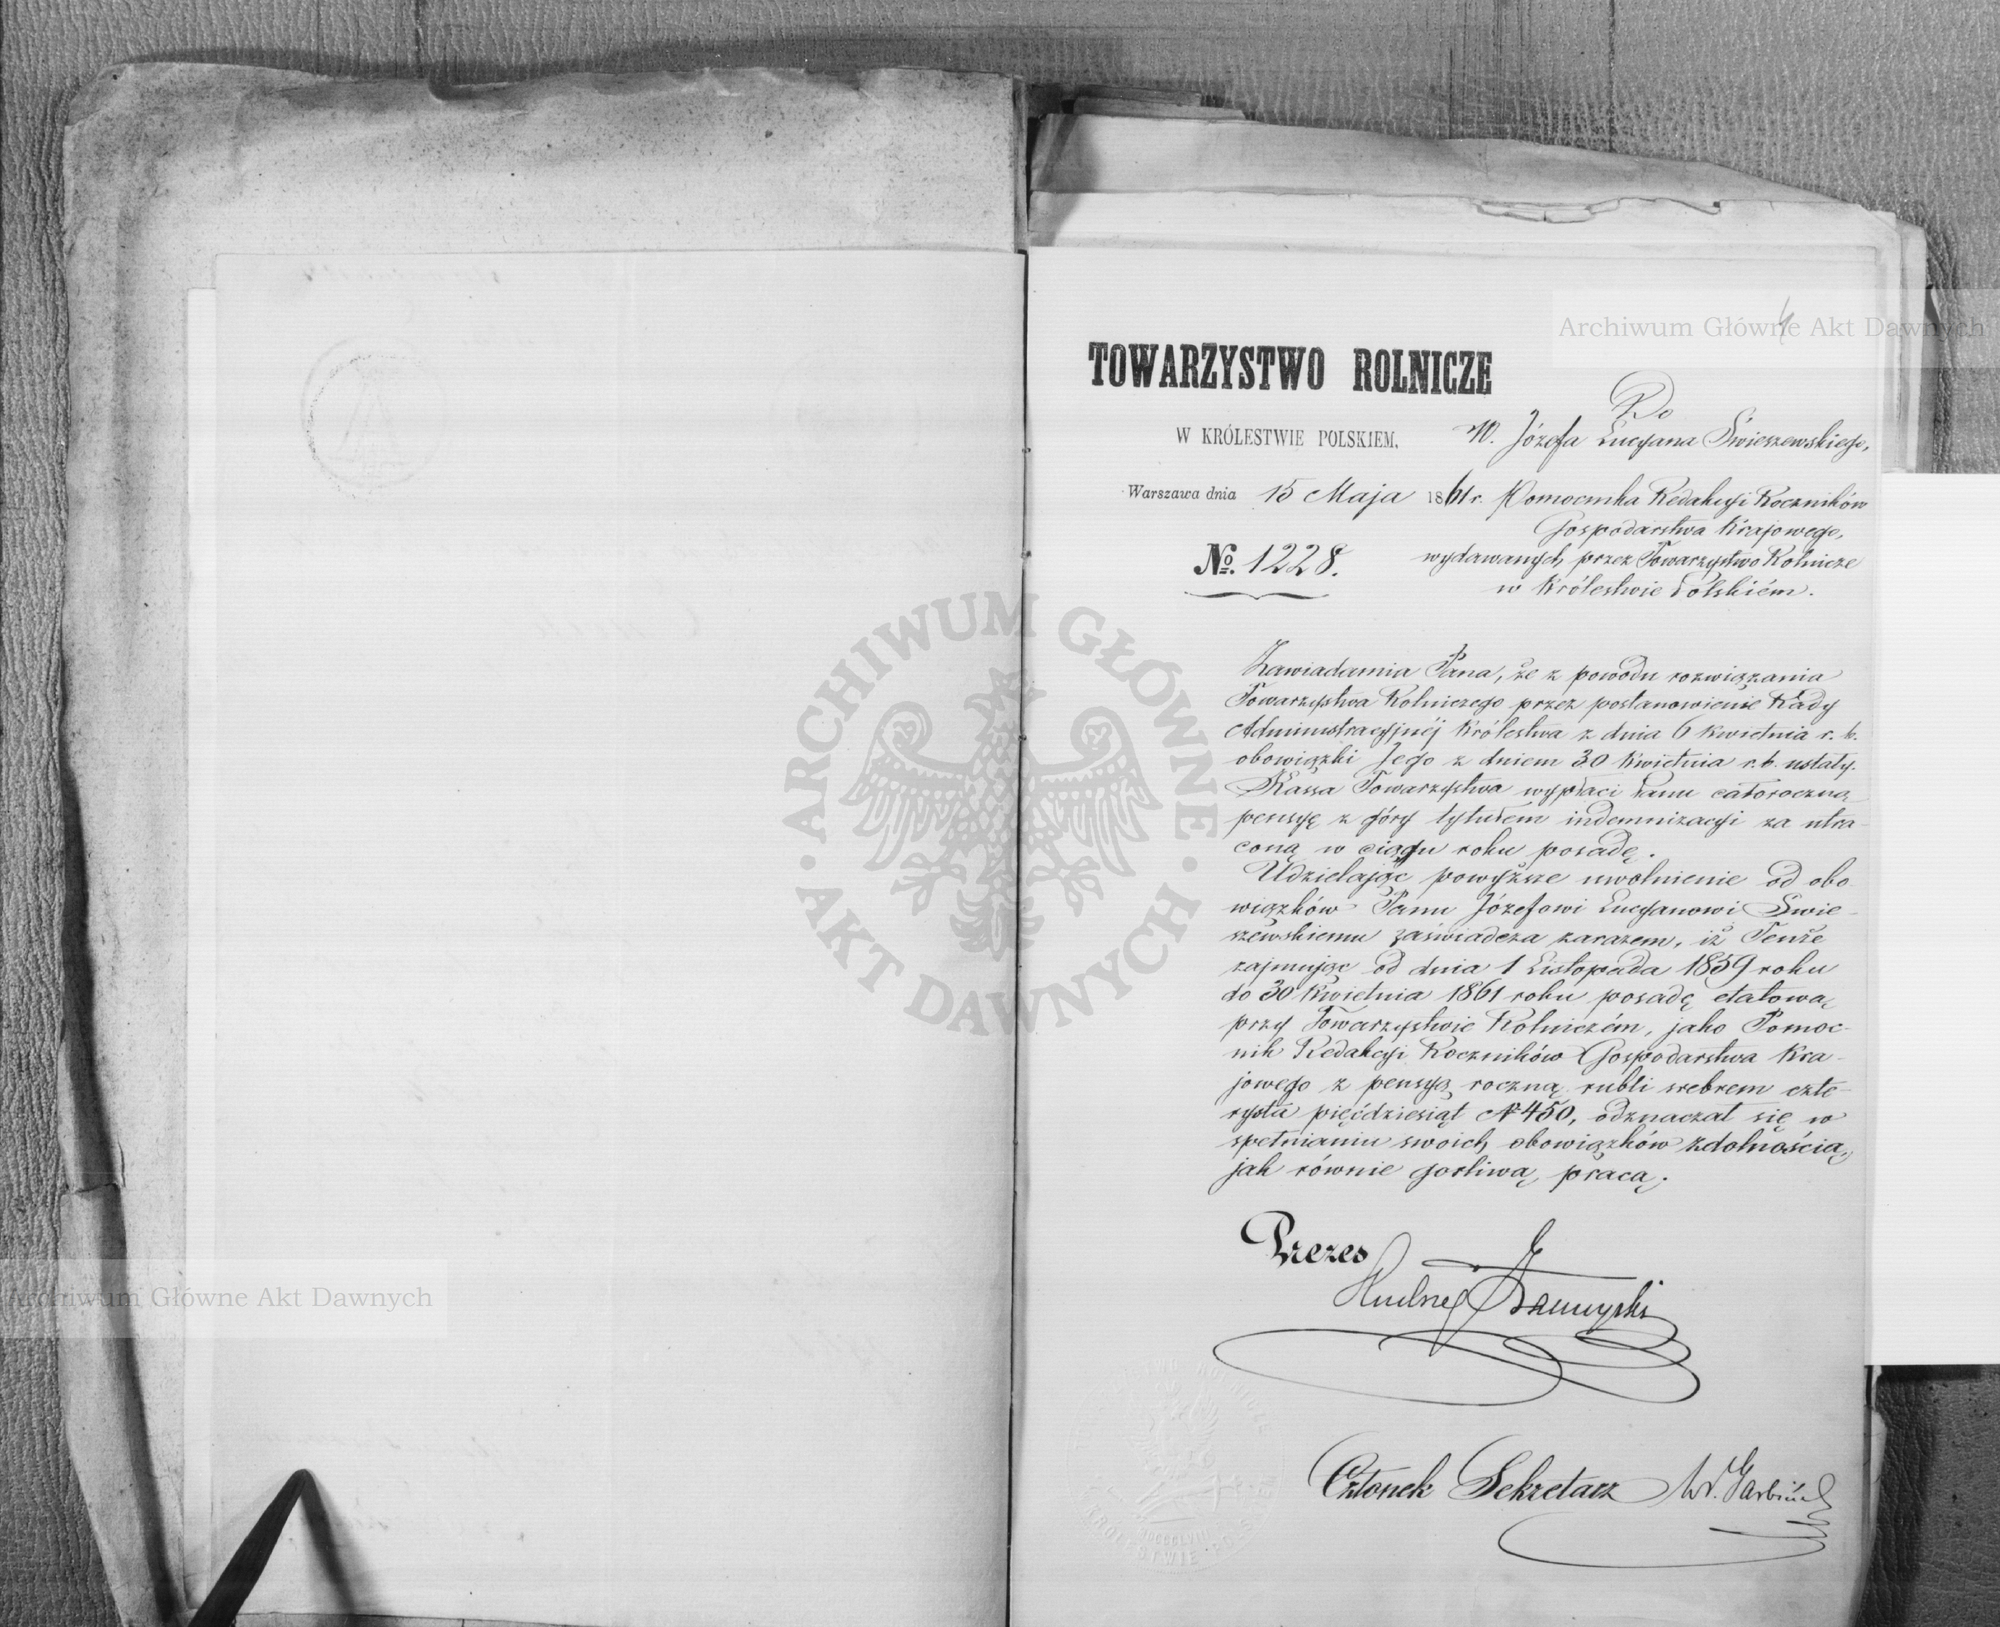 Archiwum Główne Akt Dawnych
4
TOWARZYSTWO ROLNICZE
W KRÓLESTWIE POLSKIEM.
Warszawa dnia 15 Maja 1861 r.
No. 1228.
Do
W. Józefa Lucyana Świeszewskiego,
Pomocnika Redakcyi Roczników
Gospodarstwa Krajowego,
wydawanych przez Towarzystwo Rolnicze
w Królestwie Polskiém.
Zawiadamia Pana, że z powodu rozwiązania
Towarzystwa Rolniczego przez postanowienie Rady
Administracyjnéj Królestwa z dnia 6 Kwietnia r. b.
obowiązki Jego z dniem 30 Kwietnia r. b. ustały.
Kassa Towarzystwa wypłaci Panu całoroczną
pensyę z góry tytułem indemnizacyi za utra-
coną w ciągu roku posadę.
Udzielając powyższe uwolnienie od obo-
wiązków Panu Józefowi Lucyanowi Świe-
szewskiemu zaświadcza zarazem, iż Tenże
zajmując od dnia 1 Listopada 1859 roku
do 30 Kwietnia 1861 roku posadę etatową
przy Towarzystwie Rolniczém, jako Pomoc-
nik Redakcyi Roczników Gospodarstwa Kra-
jowego z pensyą roczną rubli srebrem czte-
rysta pięćdziesiąt 450, odznaczał się w
spełnianiu swoich obowiązków zdolnością,
jak równie gorliwą pracą.
Prezes
Andrzej Zamoyski
Członek Sekretarz W. Garbiński
TOWARZYSTWO ROLNICZE
W KRÓLESTWIE POLSKIEM
MDCCCLVIII
ARCHIWUM GŁÓWNE
AKT DAWNYCH
Archiwum Główne Akt Dawnych